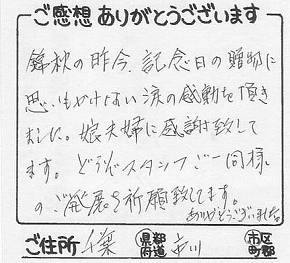 ご感想ありがとうございます
錦秋の昨今、記念日の贈物に
思いもかけない涙の感動を頂き
ました。娘夫婦に感謝致して
ます。どうぞスタンプご一同様
のご発展を祈願致してます。
ありがとうございました。
ご住所 千葉 都道府県 市川 市区町郡